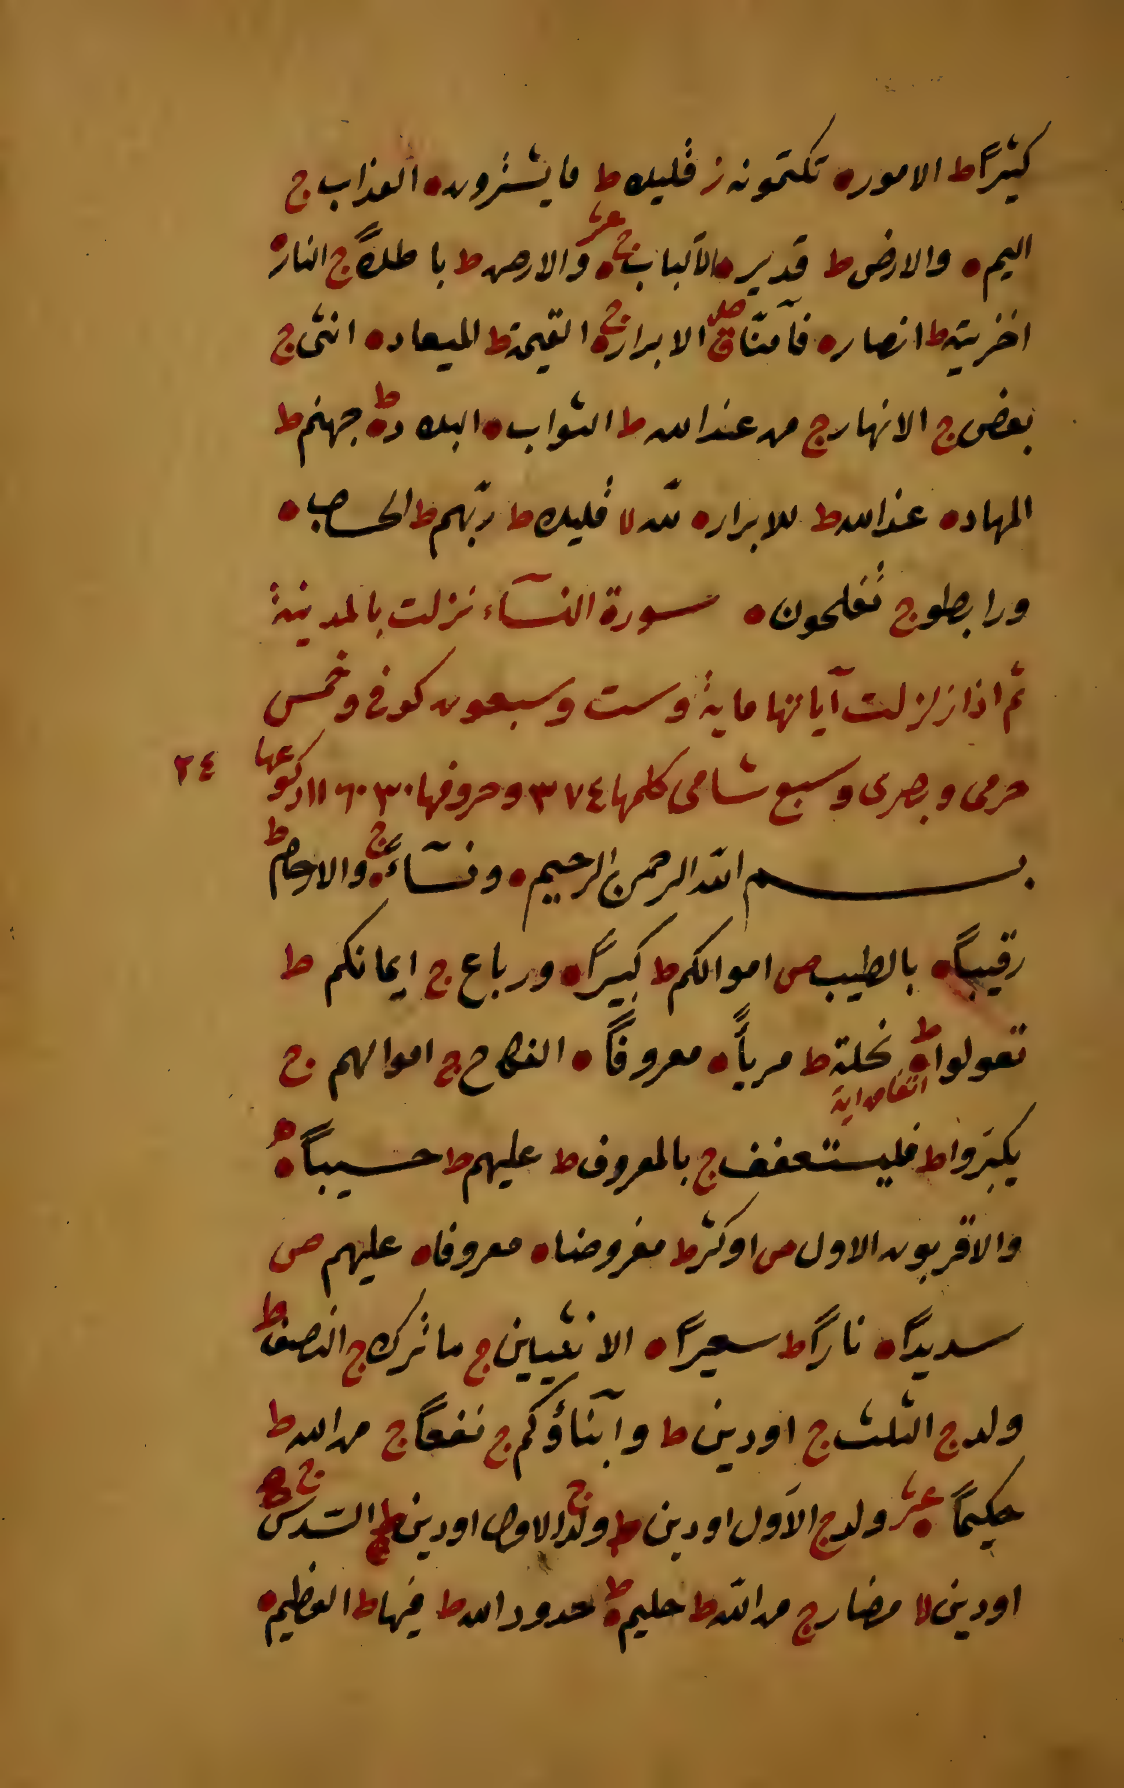 كثيراً ط الامور ه تكتمونه ز قليلا ط ما يشترون ه العذاب ج
اليم ه والارض ط قدير ه الالباب ه ج عشر والارض ط باطلاً ج النار ه
اخزيته ط انصار ه فآمنّا ق صلى الابرار ه ج القيمة ط الميعاد ه انثى ج
بعض ج الانهار ج من عند الله ط الثواب ه البلاد ه ط جهنم ط
المهاد ه عند الله ط للابرار ه لله لا قليلا ط ربّهم ط الحساب ه
ورابطوا ج تفلحون ه سورة النسآء نزلت بالمدينة
ثم اذا زلزلت آياتها ماية وست وسبعون كوفى وخمس
حرمى وبصرى وسبع شامى كلمها ٣٧٤ وحروفها ١١٦٠٣٠ ركوعها ٢٤
بسم الله الرحمن الرحيم ه ونسآءً ج والارحام ط
رقيباً ه بالطيب ص اموالكم ط كبيراً ه ورباع ج ايمانكم ط
تعولوا ه ط نحلة ط مريأً ه معروفاً ه النكاح ج اموالهم ج
اتفاق اية
يكبروا ط فليستعفف ج بالمعروف ط عليهم ط حسيباً ه
والاقربون الاول ص اوكثر ط مفروضا ه معروفا ه عليهم ص
سديداً ه ناراً ط سعيراً ه الانثيين ج ما ترك ج النصف ط
ولد ج الثلث ج اودين ط وابنآؤكم ج نفعاً ج من الله ط
حكيماً ه عشر ولد ج الاول اودين ط ولد ج الاول اودين ط السّدس ج
اودين لا مضار ج من الله ط حليم ه ط حدود الله ط فيها ط العظيم ه